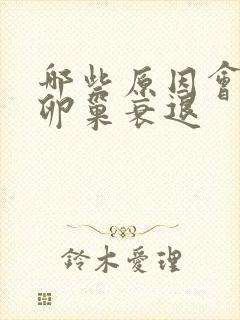 哪些原因會
卵巢衰退
鈴木愛理